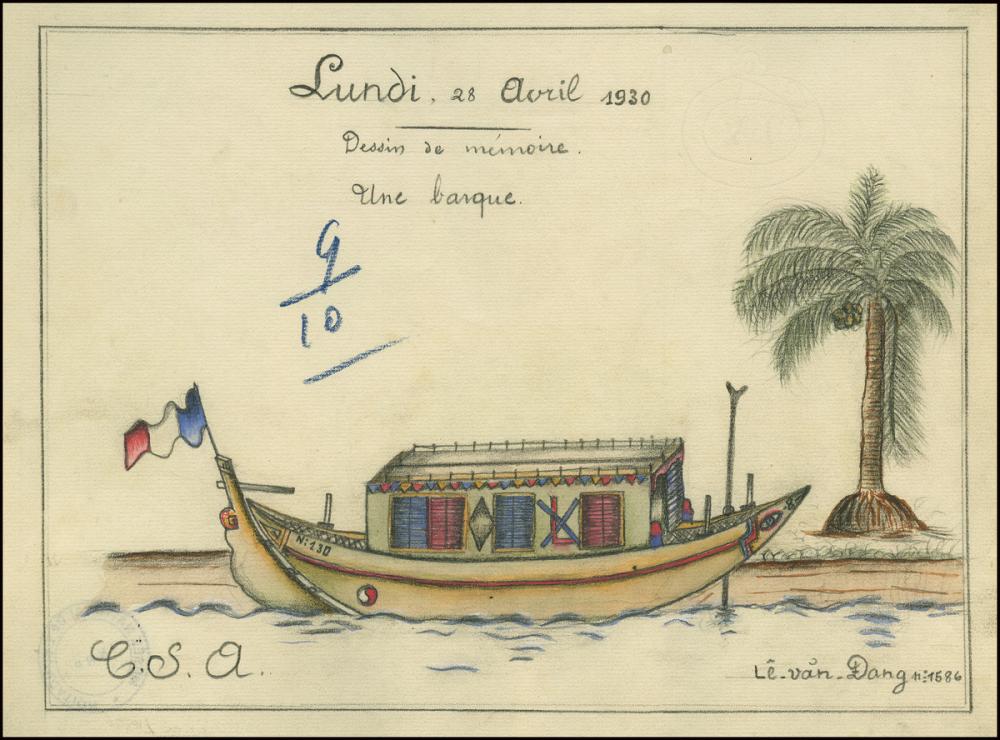 Lundi, 28 Avril 1930
Dessin de mémoire.
Une barque.
9
10
N:130
C.S.A.
Lê-văn-Đang n:1586